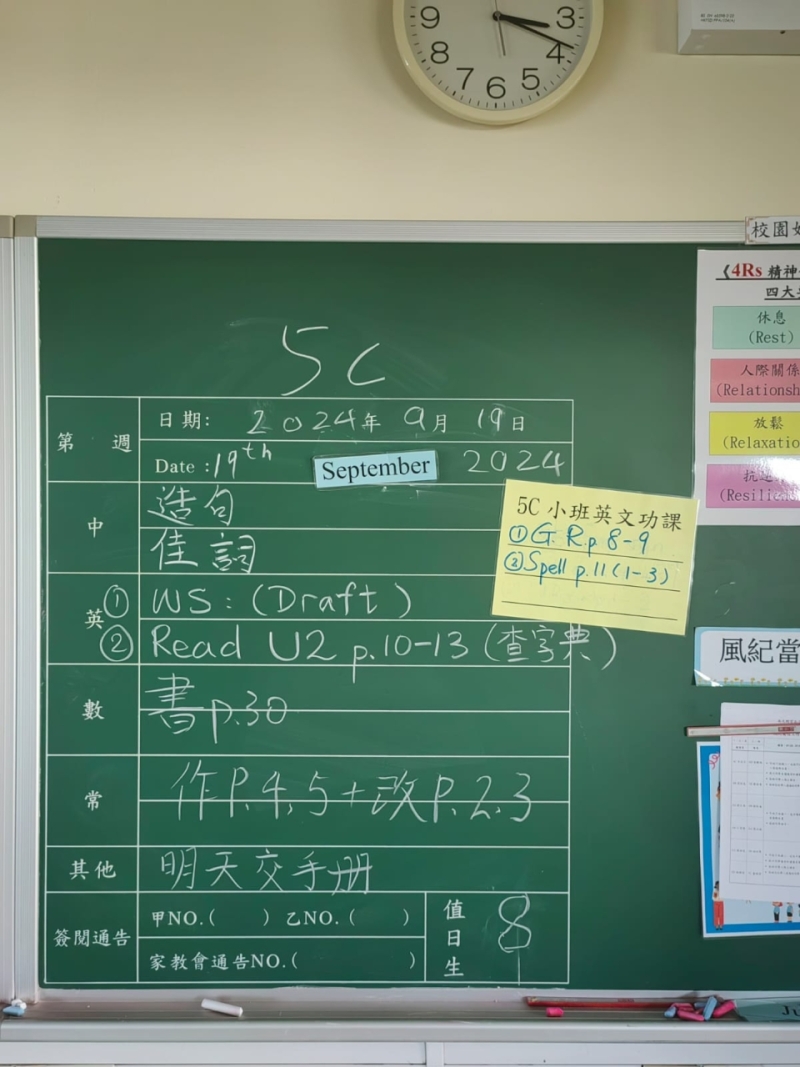 9 3 8 4 7 6 5
校園
《4Rs 精神
四大
休息
(Rest)
人際關係
(Relationsh
放鬆
(Relaxatio
(Resili
5C
第 週
日期: 2024年 9月 19日
Date : 19th September 2024
中
造句
佳詞
英
① WS: (Draft)
② Read U2 p.10-13 (查字典)
5C 小班英文功課
① G.R.p 8-9
② Spell p.11 (1-3)
數
書 p.30
常
作P.4,5+改P.2,3
其他
明天交手册
簽閱通告
甲NO.( ) 乙NO.( )
家教會通告NO.( )
值日生
8
風紀當
Ju